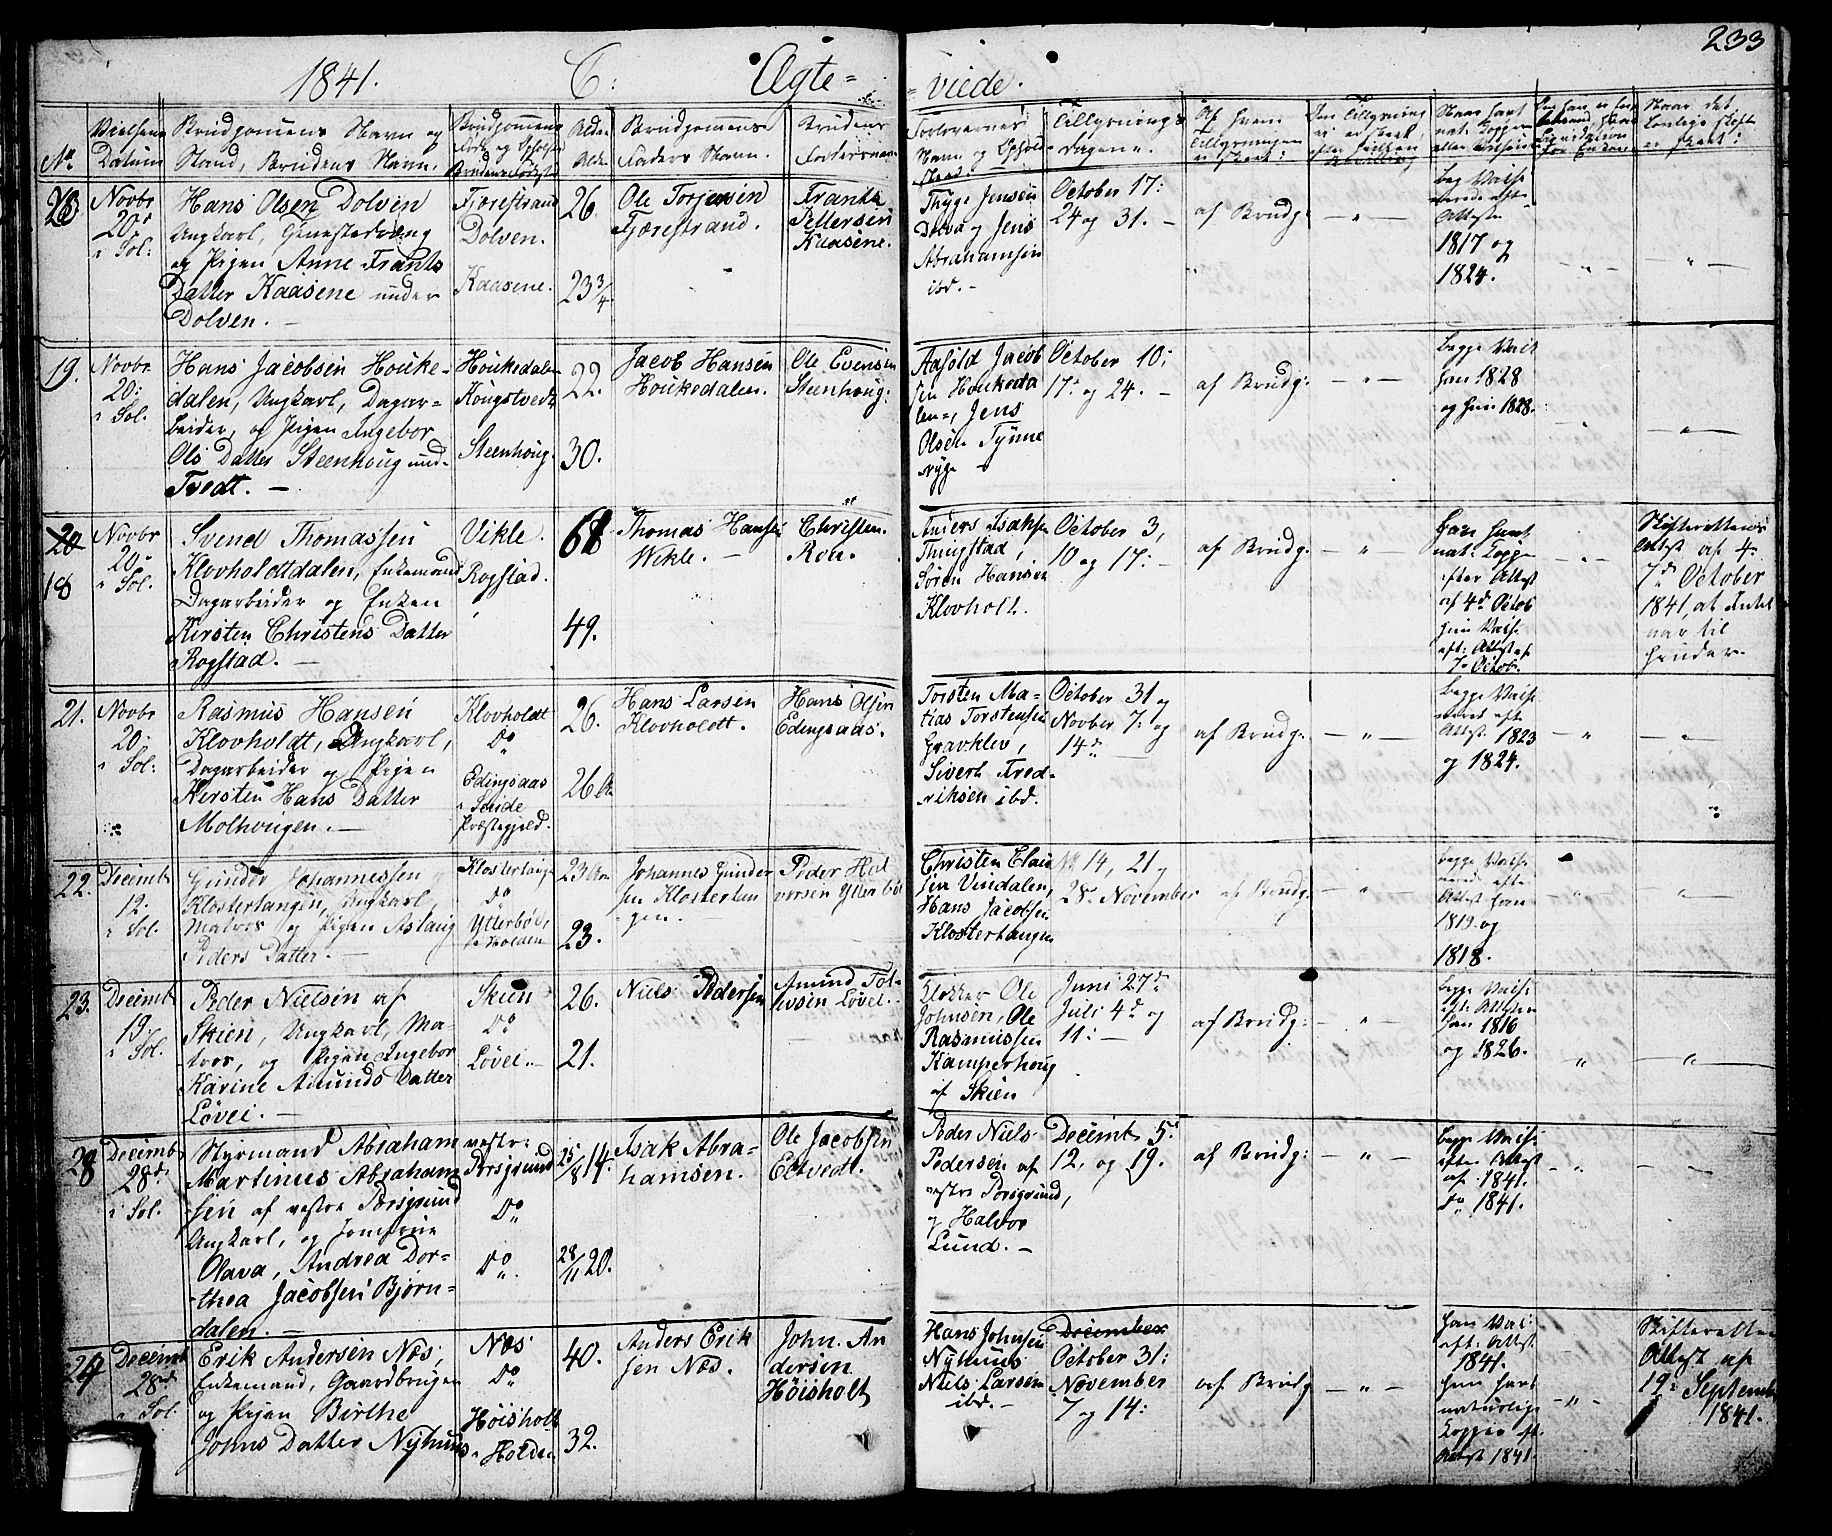 1841.
C:
Ægte=
viede.
233
No
Vielsens Datum
Brudgomens Navn og
Stand, Brudens Navn.
Brudgommens
Føde og Opholds
Brudens Fødest
Alder
Alder
Brudgomens
Faders Navn.
Brudens
Faders Navn
Forlovernes
Navn og Opholds
sted.
Tillysnings
dagen.
Af hvem
Tillysningen
er skeet:
20
Novbr
20de
i Sol:
Hans Olsen Dolven
Ungkarl,
og Pigen Anne Frants
Datter Kaasene under
Dolven. —
Fjærestrand
Dolven.
Kaasene.
26
23 3/4
Ole Torjersen
Fjærestrand.
Frants
Pettersen
Kaasene.
Thyge Jensen
Dolva og Jens
Abrahamsen
ibd. —
October 17:
24 og 31. —
af Brudg:
— " —
Beg Vaks
nerede eft
Attest
1817 og
1824.
— " —
— " —
19.
Novbr
20:
i Sol.
Hans Jacobsen Houke-
dalen, Ungkarl, Dagar-
beider, og Pigen Ingebor
Ols Datter Steenhoug und-
Tvedt. —
Houkedalen
Kougstvedt
Steenhoug.
22.
30.
Jacob Hansen
Houkedalen.
Ole Evensen
Steenhoug:
Aasold Jacob
sen Houkeda
len, Jens
Olsen Tynne
ryge —
October 10:
17: og 24. —
af Brudg:
— " —
Begge Vaks
han 1828
og hun 1828.
— " —
20
18
Novbr
20de
i Sol.
Svend Thomassen
Klovholtdalen, Enkemand
Dagarbeider og Enken
Kersten Christens Datter
Rogstad. —
Vikle.
Rogstad.
68
49.
Thomas Hansen
Wikle. —
Christen
Roe.
Anders Isaksen
Thrugstad,
Søren Hansen
Klovholt.
October 3,
10 og 17: —
af Brudg:
— "
Han havt
nat: Kopper
efter Attest
af 4de Octob
hun Vaks.
eft: Attest af
7de Octob.
— " —
Skifterettens
Attest af 4.
7de October
1841, at Intet
var til
hinder.
21.
Novbr
20:
i Sol:
Rasmus Hansen
Klovholdt, Ungkarl,
Dagarbeider og Pigen
Kersten Hans Datter
Molhougen. —
Klovholdt
Do
Edingsaas
i Souide
Præstegjeld.
26.
26 Ar
Hans Larsen
Klovholdt.
Hans Olsen
Edingsaas.
Torsten Ma-
tias Torstensen
Gravklev,
Sivert Fred-
riksen ibd.
October 31 og
Novber 7: og
14de
af Brudg:
— " —
Begge Vaks.
neret eft
Attest. 1823
og 1824.
"
— " —
22.
Decemb
12.
i Sol.
Gunder Johannessen
Klostertangen, Ungkarl,
Matros og Pigen Aslaug
Peders Datter. —
Klostertang
Do
Ytterbøe,
i Holden
23 Ar
23.
Johannes Gunder
sen Klostertan
gen.
Peder Hal
vorsen Ytterbøe
Christen Claus
sen Vindalen,
Hans Jacobsen
Klostertangen
14, 21 og
28de November
af Brudg:
— " —
Begge Vaks.
nerede efter
Attest han
1819 og
1818.
"
"
23.
Decemb
19:
i Sol.
Peder Nielsen af
Skien, Ungkarl, Ma-
tros, og Pigen Ingebor
Karine Amunds Datter
Løvei. —
Skien
Do
Løvei.
26.
21.
Niels Pedersen
Amund Tol-
levsen Løvei.
Klokker Ole
Johnsen, Ole
Rasmussen
Kamperhoug
af Skien
Juni 27de
Juli 4de og
11: —
af Brudg:
— " —
Begge Vaks.
eft. Attester
han 1816
og 1826.
"
"
28
Decemb
28de
i Sol.
Styrmand Abraham
Martinus Abraham-
sen af vestre Porsgrund
Ungkarl, og Jomfrue
Olava, Andrea Dor-
thea Jacobsen Bjørn-
dalen. —
vestre
Porsgrund
Do
Do
25/8 14.
28/11 20.
Isak Abra-
hamsen.
Ole Jacobsen
Eetvedt.
Peder Niels
Pedersen af
vestre Porsgrund,
og Halvor
Lund. —
Decemb 5de
12, og 19.
af Brudg:
— " —
Begge Vaks.
efter Attest
af 1841.
Do 1841.
— " —
— " —
24
Decemb
28de
i Sol.
Erik Andersen Næs,
Enkemand, Gaardbruger
og Pigen Birthe
Johns Datter Nyhuus
Næs
Do
Høisholt
i Holden
40.
32.
Anders Erik
sen Næs.
John An
dersen
Høisholt
Hans Johnsen
Nyhuus
Niels Larsen
ibd. —
December
October 31:
November
7 og 14:
af Brudg
— " —
han Vak:
eft: Attest
1841.
hun havt
naturlige
Kopper eft.
Attest 1841.
— " —
Skifteretten
Attest af
19: Septemb
1841.